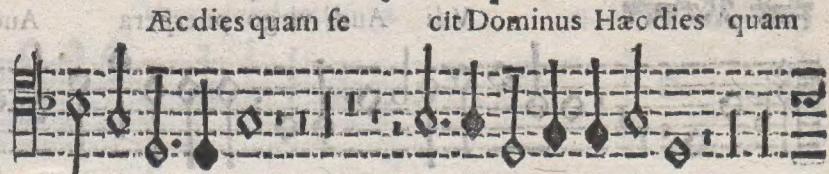 Æc dies quam fe cit Dominus Hæc dies quam